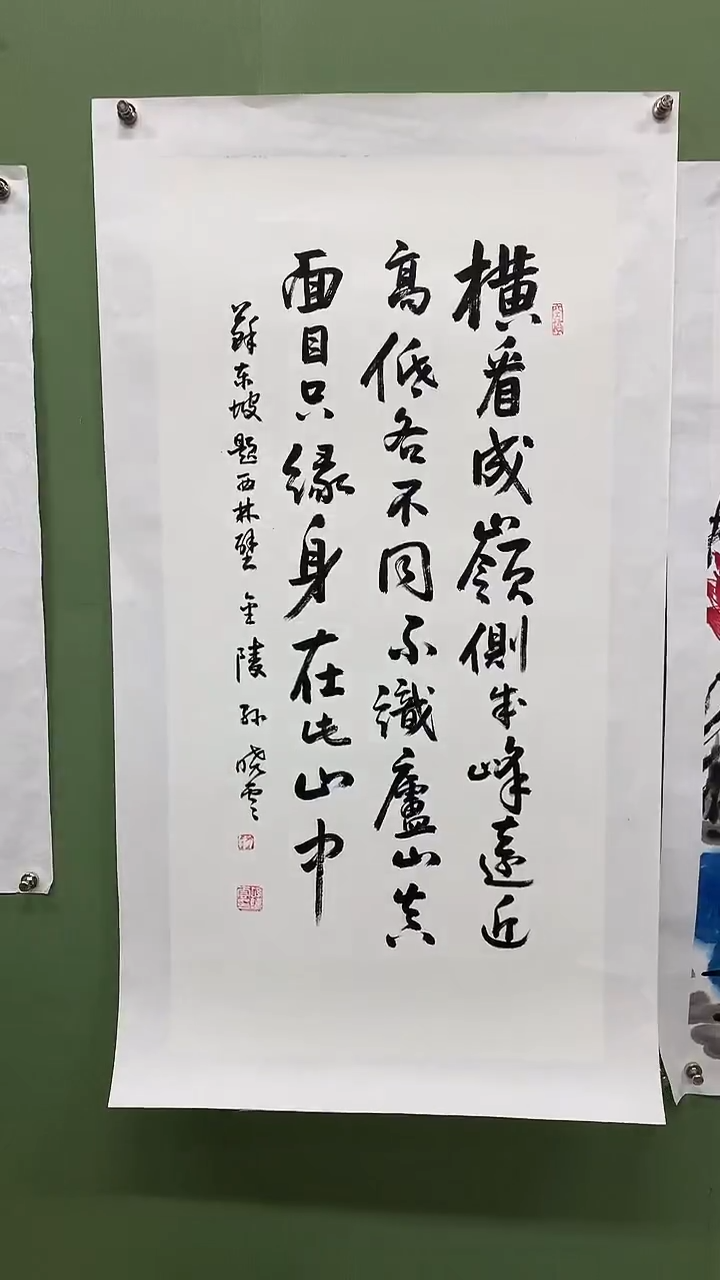 橫看成嶺側成峰遠近
高低各不同不識廬山真
面目只緣身在此山中
蘇东坡題西林壁 金陵 孙晓雲